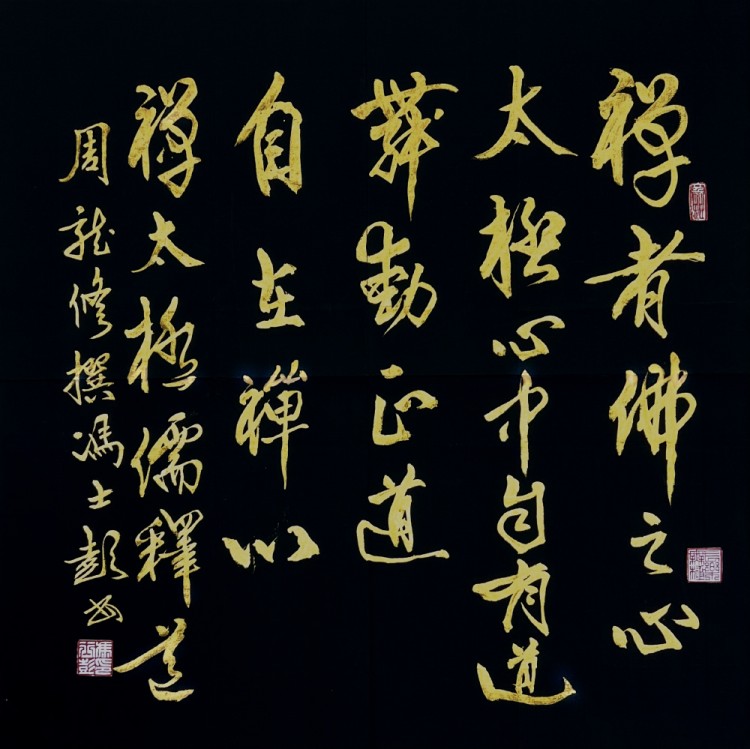 禅者佛之心
太極心中自有道
舞動正道
自在禪心
禅太極儒釋道
周龍修撰馮士彭書